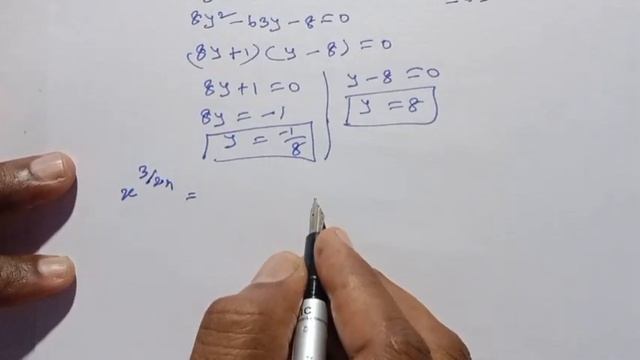 8y² - 63y - 8 = 0
(8y + 1) (y - 8) = 0
8y + 1 = 0
8y = -1
y = -1/8
y - 8 = 0
y = 8
x^3/2n =
IC